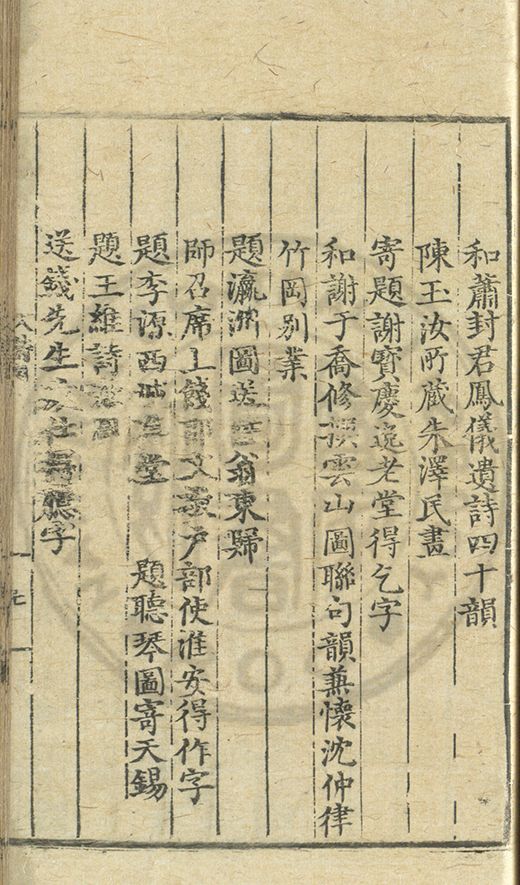 和蕭封君鳳儀遺詩四十韻
陳玉汝所藏朱澤民畫
寄題謝寳慶逸老堂得乞字
和謝于喬修撰雲山圖聯句韻兼懷沈仲律
竹岡别業
題瀛洲圖送翁東歸
師召席上餞文戶部使淮安得作字
題李源西堂 題聽琴圖寄天錫
題王維詩
送錢先生字